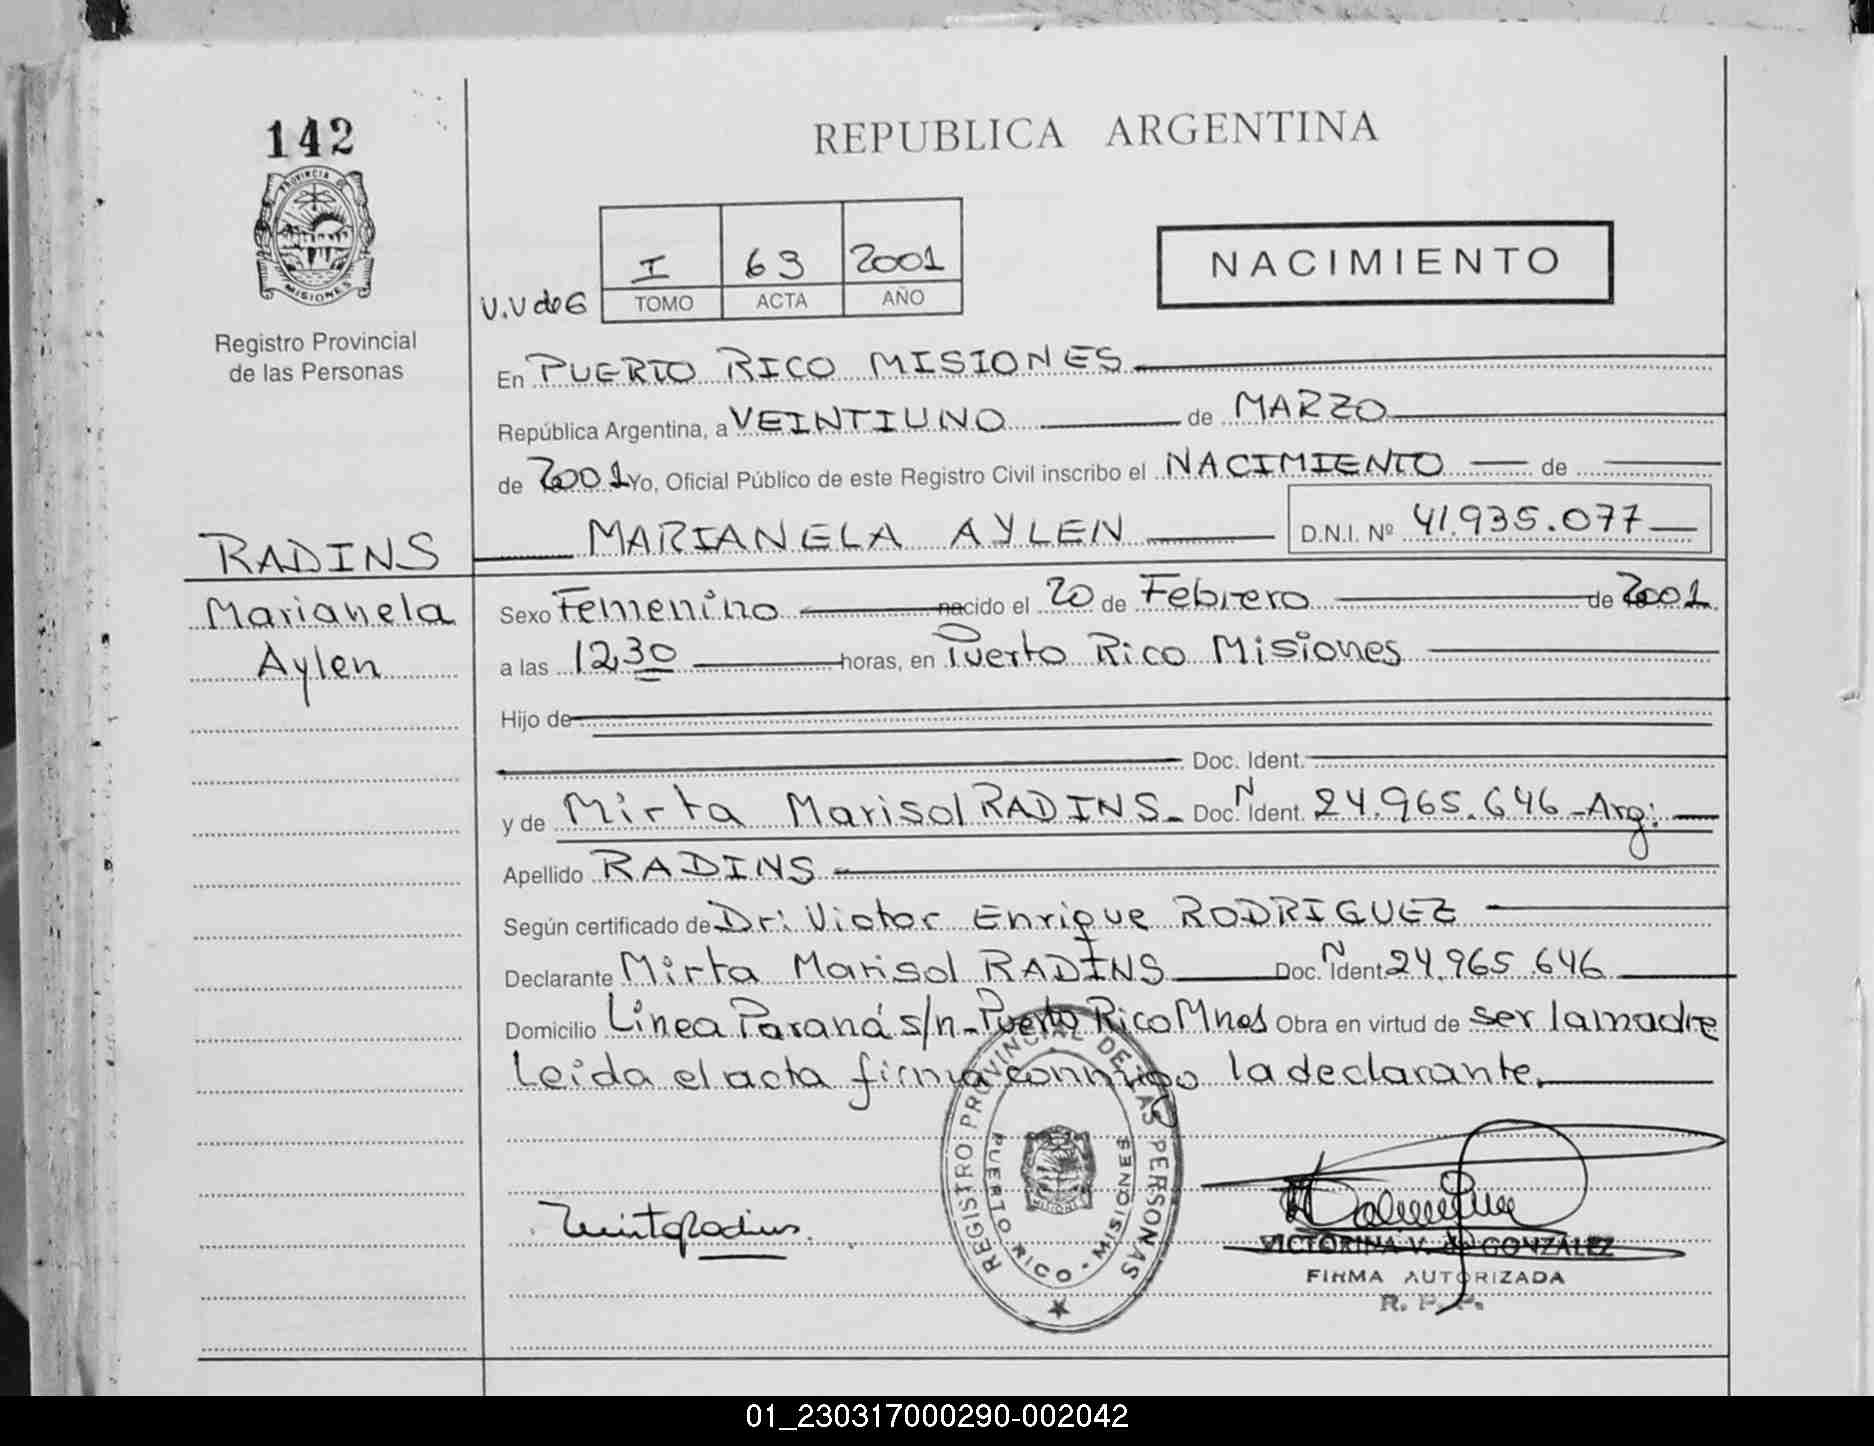 142
PROVINCIA DE
MISIONES
Registro Provincial
de las Personas
REPUBLICA ARGENTINA
I 63 2001
V.V de G TOMO ACTA AÑO
NACIMIENTO
En PUERTO RICO MISIONES
República Argentina, a VEINTIUNO de MARZO
de 2001 Yo, Oficial Público de este Registro Civil inscribo el NACIMIENTO de
MARIANELA AYLEN D.N.I. Nº 41.935.077
RADINS
Marianela
Aylen
Sexo Femenino nacido el 20 de Febrero de 2001
a las 12,30 horas, en Puerto Rico Misiones
Hijo de
Doc. Ident.
y de Mirta Marisol RADINS Doc. N Ident. 24.965.646 Arg:
Apellido RADINS
Según certificado de Dr: Victor Enrique RODRIGUEZ
Declarante Mirta Marisol RADINS Doc. N Ident 24.965.646
Domicilio Línea Paraná s/n - Puerto Rico Mnes Obra en virtud de ser la madre
Leida el acta firma conmigo la declarante.
REGISTRO PROVINCIAL DE LAS PERSONAS
PUERTO RICO - MISIONES
VICTORINA V. de GONZALEZ
FIRMA AUTORIZADA
R. P. P.
01_230317000290-002042